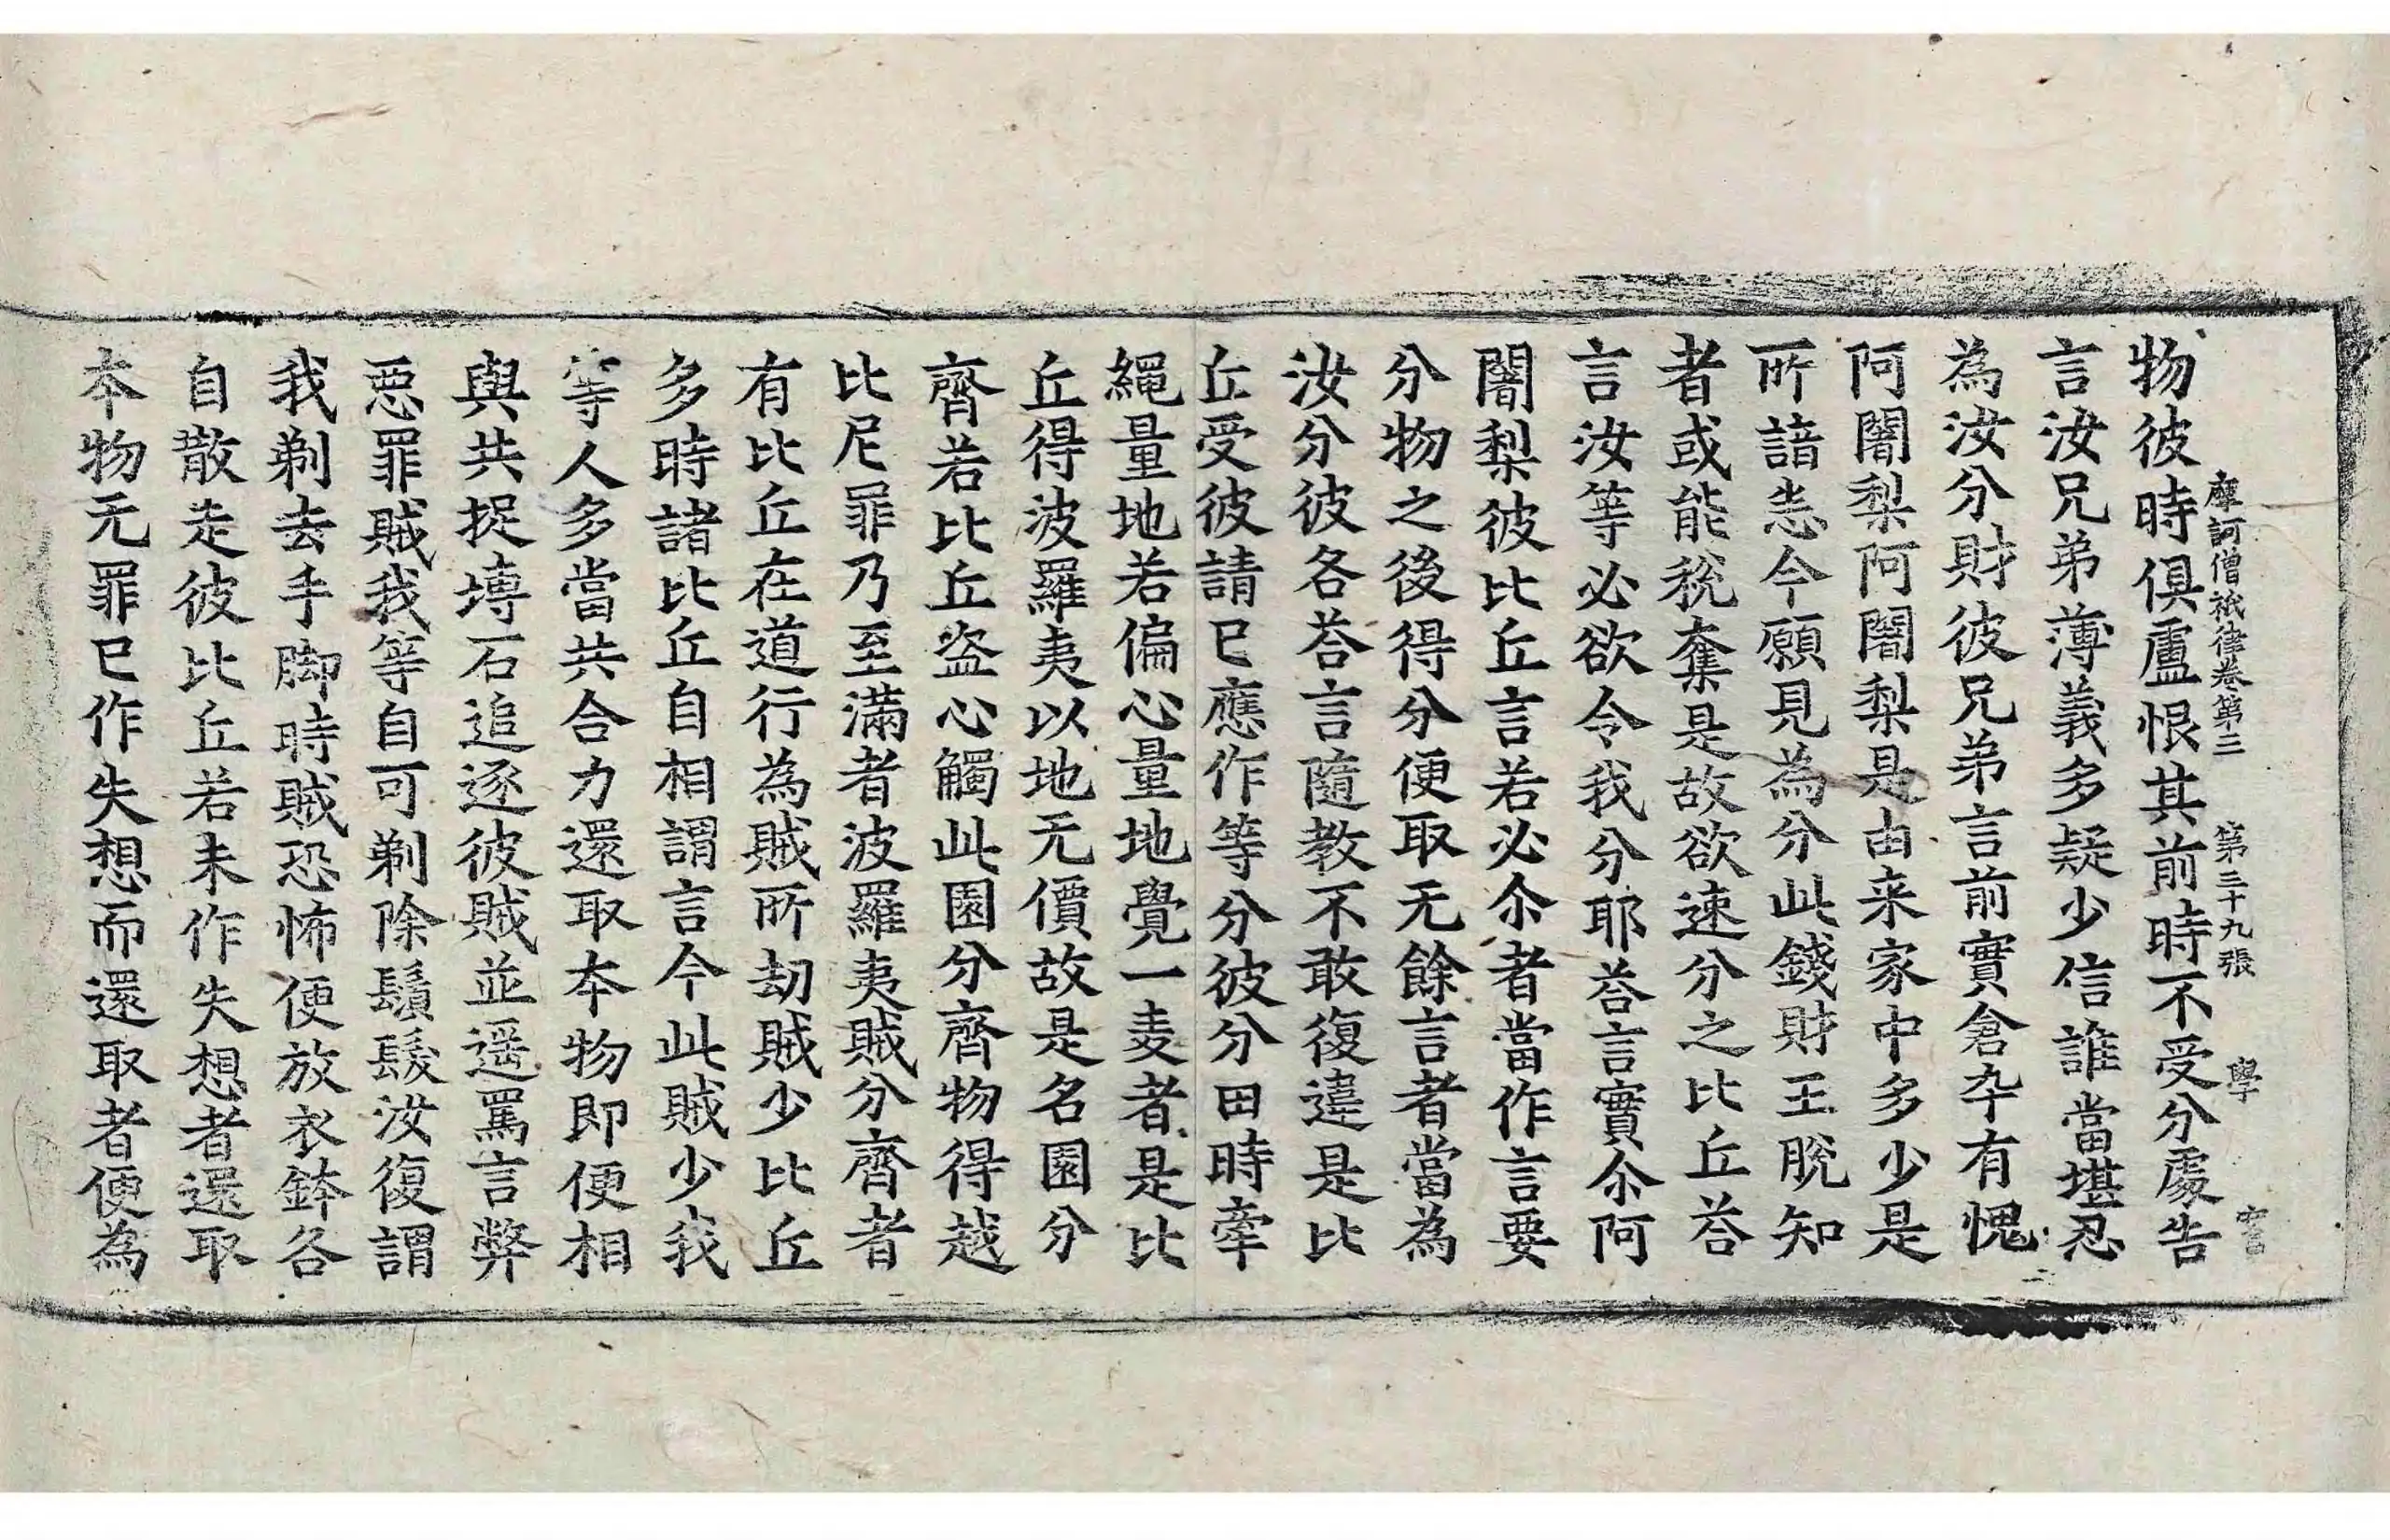 摩訶僧祇律卷第三 第三十九張 學
物彼時俱盧恨其前時不受分處告
言汝兄弟薄義多疑少信誰當堪忍
為汝分財彼兄弟言前實倉卒有愧
阿闍梨阿闍梨是由来家中多少是
所諳悉今願見為分此錢財王脫知
者或能稅奪是故欲速分之比丘荅
言汝等必欲令我分耶荅言實尒阿
闍梨彼比丘言若必尒者當作言要
分物之後得分便取无餘言者當為
汝分彼各荅言隨教不敢復違是比
丘受彼請已應作等分彼分田時牽
繩量地若偏心量地覺一麦者是比
丘得波羅夷以地无價故是名園分
齊若比丘盜心觸此園分齊物得越
比尼罪乃至滿者波羅夷賊分齊者
有比丘在道行為賊所劫賊少比丘
多時諸比丘自相謂言今此賊少我
等人多當共合力還取本物即便相
與共捉塼石追逐彼賊並遥罵言弊
惡罪賊我等自可剃除鬚髮汝復謂
我剃去手脚時賊恐怖便放衣鉢各
自散走彼比丘若未作失想者還取
本物无罪已作失想而還取者便為